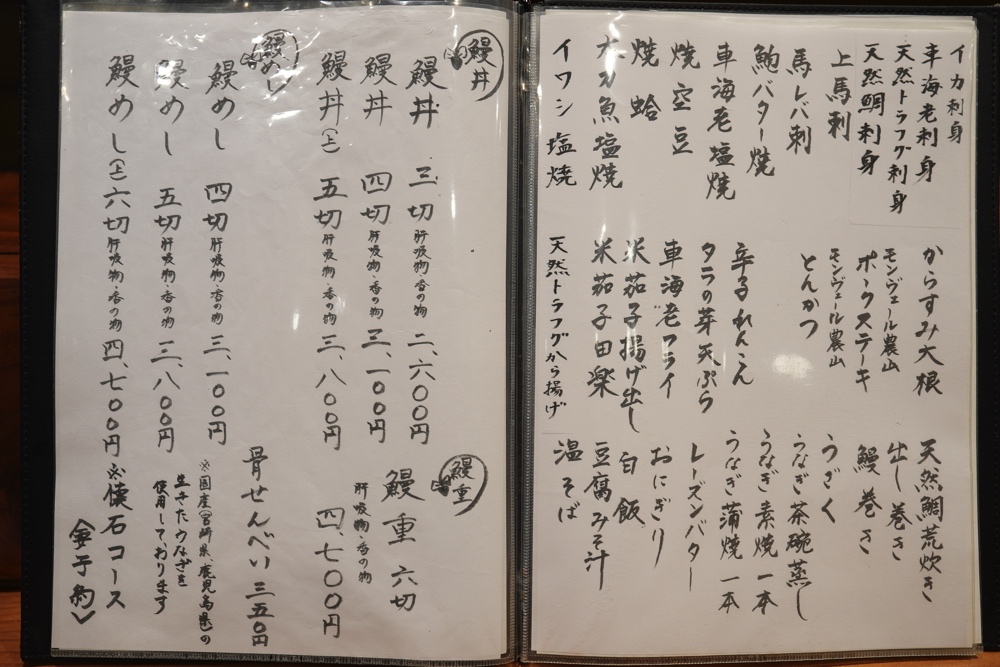 イカ刺身
車海老刺身
天然トラフグ刺身
天然鯛刺身
上馬刺
馬レバ刺
鮑バター焼
車海老塩焼
焼空豆
焼蛤
太刀魚塩焼
イワシ塩焼
からすみ大根
モンヴェール農山
ポークステーキ
モンヴェール農山
とんかつ
辛子れんこん
タラの芽天ぷら
車海老フライ
米茄子揚げ出し
米茄子田楽
天然トラフグから揚げ
天然鯛荒炊き
出し巻き
鰻巻き
うざく
うなぎ茶碗蒸し
うなぎ素焼一本
うなぎ蒲焼一本
レーズンバター
おにぎり
白飯
豆腐みそ汁
温そば
鰻丼
鰻丼 三切 肝吸物・香の物 二、六〇〇円
鰻丼 四切 肝吸物・香の物 三、一〇〇円
鰻丼(上) 五切 肝吸物・香の物 三、八〇〇円
鰻めし
鰻めし 四切 肝吸物・香の物 三、一〇〇円
鰻めし 五切 肝吸物・香の物 三、八〇〇円
鰻めし(上) 六切 肝吸物・香の物 四、七〇〇円
鰻重
鰻重 六切
肝吸物・香の物
四、七〇〇円
骨せんべい 三五〇円
※国産(宮崎県、鹿児島県)の
生きたうなぎを
使用しております
※懐石コース
(要予約)